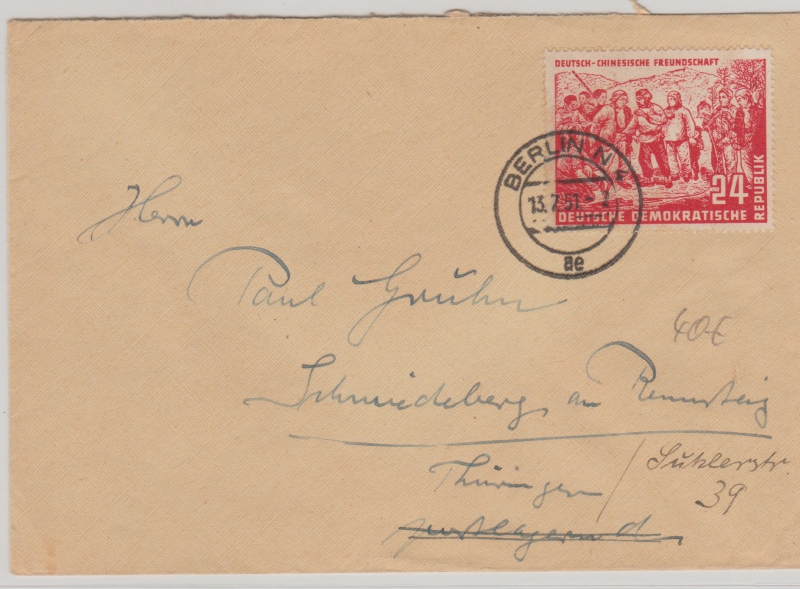 DEUTSCH-CHINESISCHE FREUNDSCHAFT
24
DEUTSCHE DEMOKRATISCHE
REPUBLIK
BERLIN N 4
13.7.51
ae
Herrn
Paul Gruhn
40€
Schmiedeberg am Rennsteig
Thüringen / Suhlerstr.
39
postlagernd